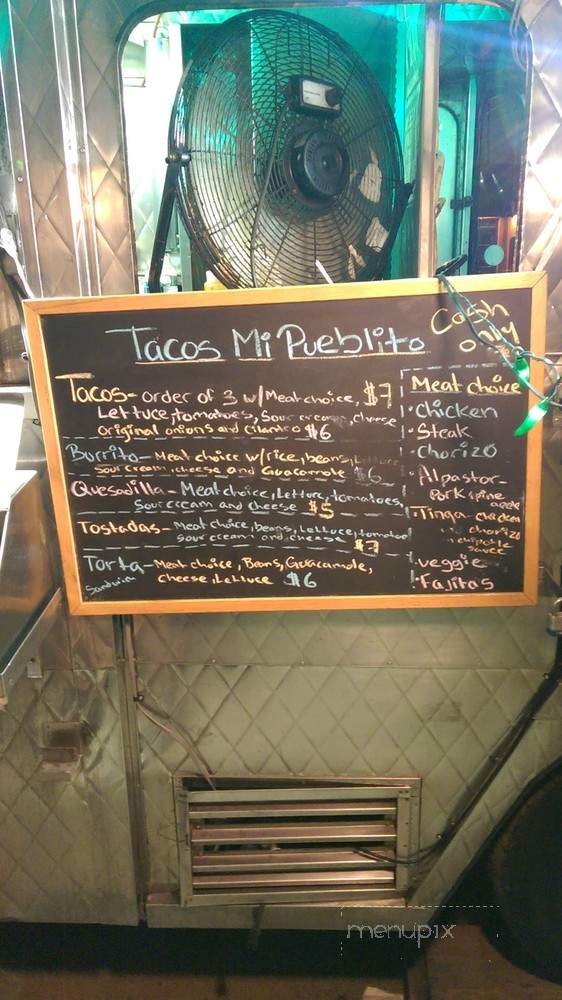 Tacos Mi Pueblito
Cash
only
Tacos- order of 3 w/Meat choice, $7
Lettuce, tomatoes, Sour cream, cheese
Original onions and Cilantro $6
Burrito- Meat choice w/rice, beans, Lettuce
Sour cream, cheese and Guacamole $6
Quesadilla- Meat choice, Letture, tomatoes,
Sour cream and cheese $5
Tostadas- Meat choice, beans, Lettuce, tomatoes
Sour cream and cheese
Torta- Meat choice, Beans, Guacamole,
Sandwich
cheese, Lettuce $6
Meat choice
·Chicken
·Steak
·Chorizo
·Alpastor-
Pork & pine
·Tinga- chicken
chorizo
chipotle
sauce
·veggie
·Fajitas
menupix